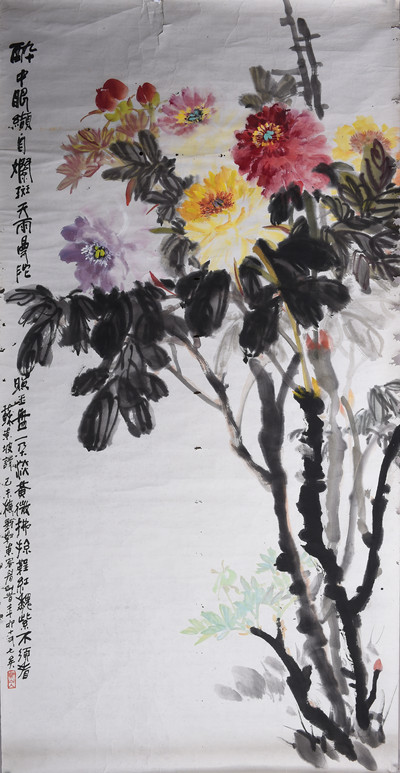 醉中眼纈自斕斑天雨曼陀
照玉盤一朵淡黃微拂掠鞓紅魏紫不須看
蘇東坡詩 己未